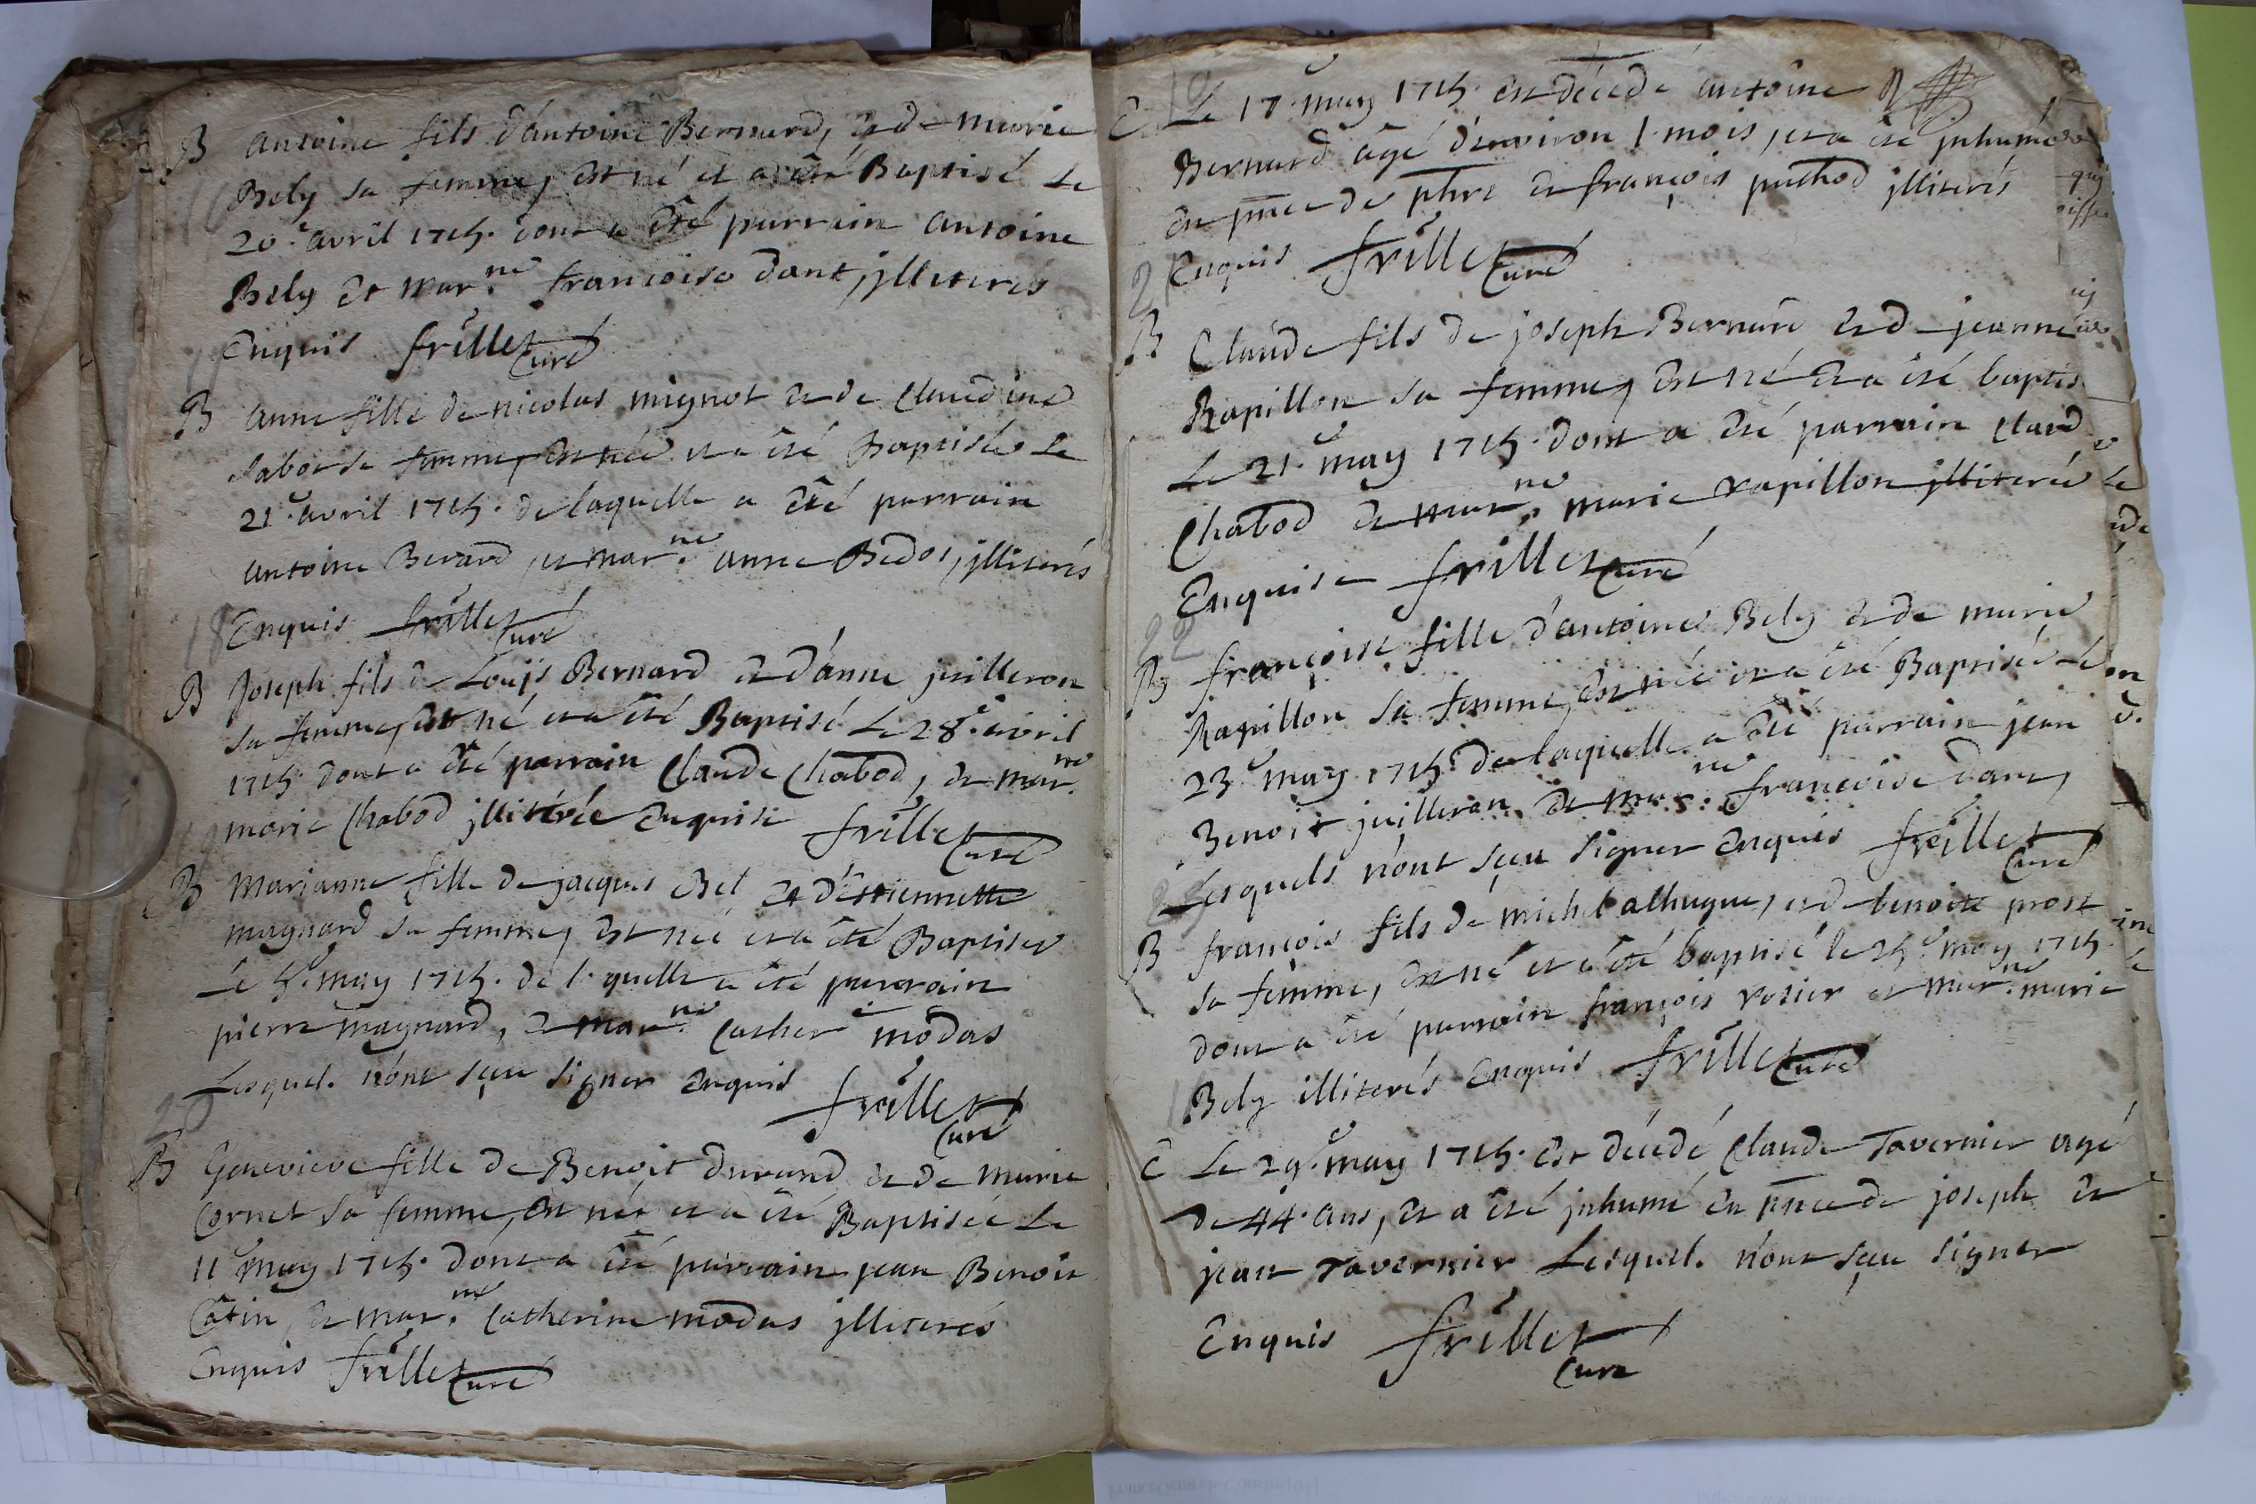 B Antoine fils d'antoine Bernard, et de Marie
Bely sa femme, est né et a été Baptisé Le
20.e avril 1715. dont a été parrain Antoine
Bely et mar.ne francoise dant, jlliterés
Enquis frillet Curé
B Anne fille de nicolas mignot et de Claudine
sa femme, est née et a été Baptisée Le
21.e avril 1715. de laquelle a été parrain
Antoine Berard, et mar.ne anne Bedot, jlliterés
18 Enquis frillet Curé
B Joseph fils de Louÿs Bernard et d'anne juilleron
sa femme, est né et a été Baptisé Le 28.e avril
1715. dont a été parrain Claude Chabod, et mar.ne
marie Chabod jlliterée enquise frillet Curé
B Marianne fille de jacques Bel et d'Estiennette
magnard sa femme, est née et a été Baptisée
Le 5.e may 1715. de l. quelle a été parrain
pierre magnard, et mar.ne Cather.e modas
Lesquel. n'ont sçeu signer enquis
20 frillet Curé
B Genevieve fille de Benoit durand et de Marie
Cornet sa femme, est née et a été Baptisée Le
11.e may 1715. dont a été parrain jean Benoit
Catin, et mar.ne Catherine modas jlliterés
Enquis frillet Curé
C Le 17.e may 1715. est décedé antoine
Bernard âgé d'environ 1. mois, et a été jnhumé
en pnce de phre et françois puthod jlliterés
21 Enquis frillet Curé
B Claude fils de joseph Bernard et de jeanne
Rapillon sa femme, est né et a été baptisé
Le 21.e may 1715. dont a été parrain Claud
Chabod et mar.ne marie rapillon jlliterée
Enquise frillet Curé
22
B françoise fille d'antoine Bely et de marie
Rapillon sa femme, est née et a été Baptisée Le
23.e may 1715. de laquelle a été parrain jean
Benoit juilleron et mar.ne francoise dant,
Lesquels n'ont sçeu signer enquis frillet Curé
B françois fils de michel alhugue, et de benoite prost
sa femme, est né et a été baptisé le 25.e may 1715.
dont a été parrain françois rosier et mar.ne marie
Bely illiterés enquis frillet Curé
C Le 29.e may 1715. est décedé Claude Tavernier agé
de 44. ans, et a été jnhumé en pnce de joseph et
jean Tavernier Lesquel. n'ont sçeu signer
Enquis frillet
Curé